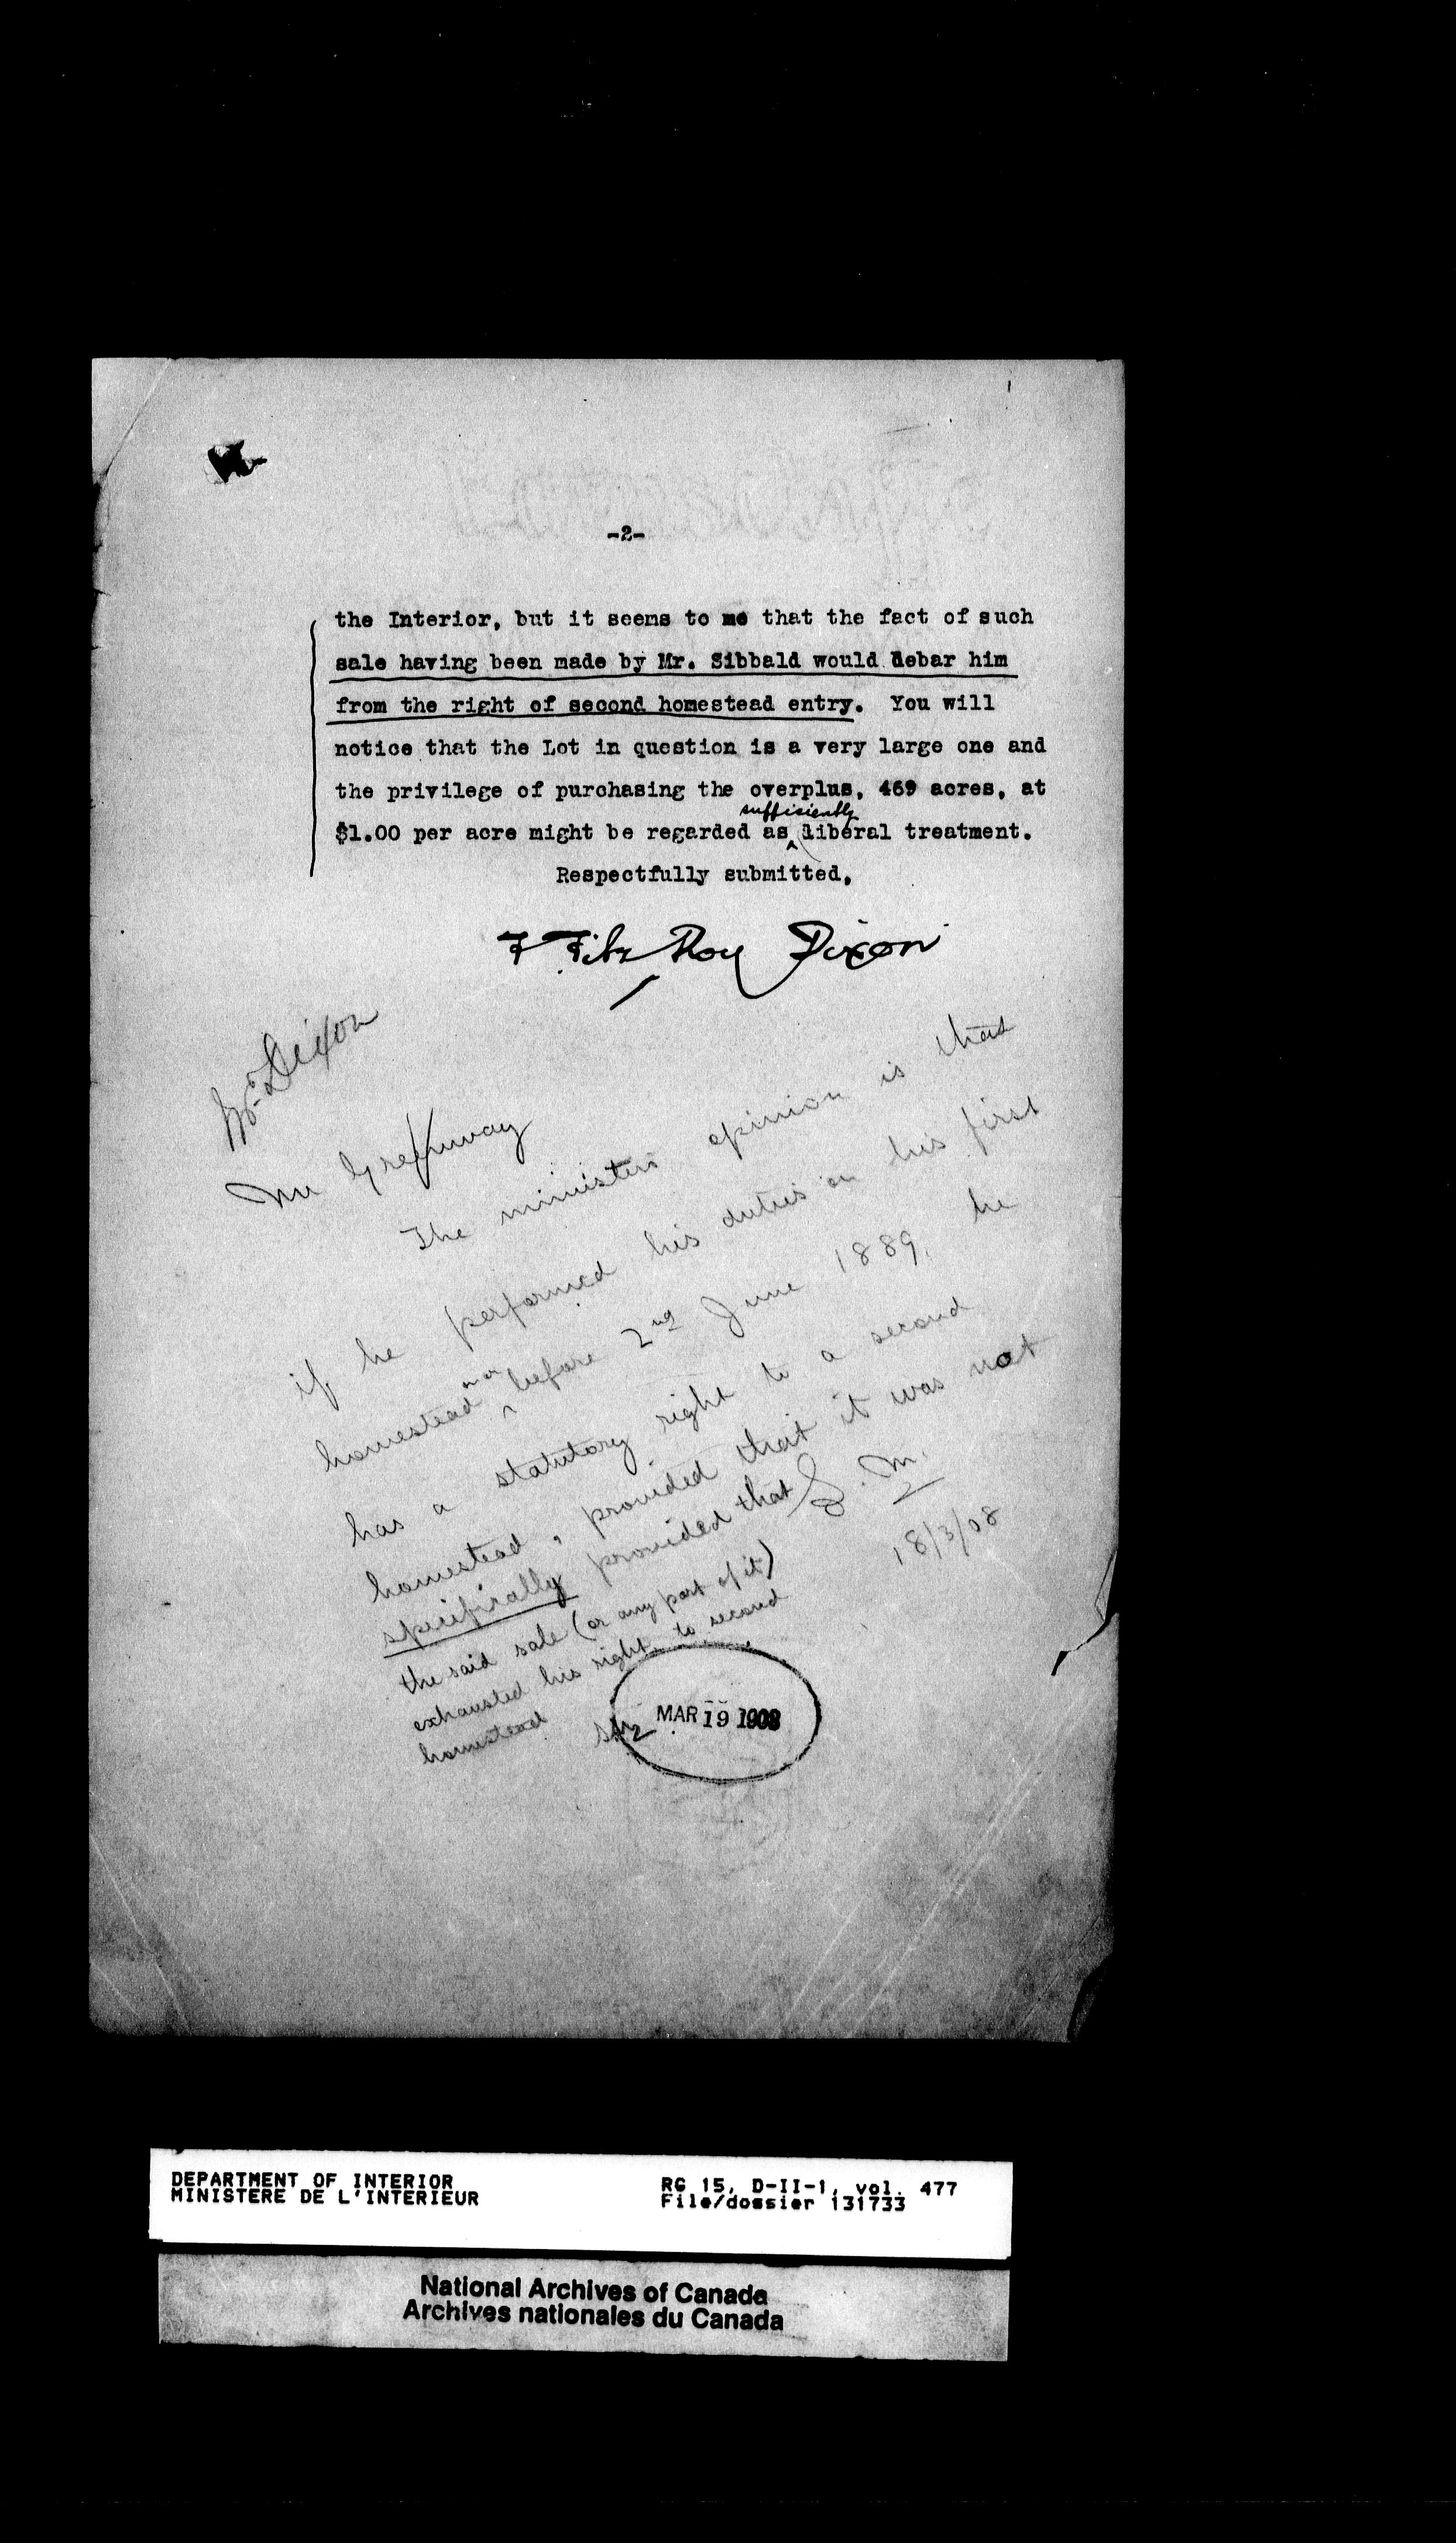 -2-
the Interior, but it seems to me that the fact of such
sale having been made by Mr. Sibbald would debar him
from the right of second homestead entry. You will
notice that the Lot in question is a very large one and
the privilege of purchasing the overplus, 469 acres, at
sufficiently
$1.00 per acre might be regarded as ^ liberal treatment.
Respectfully submitted,
F Fitz Roy Dixon
Mr. Dixon
Mr Greenway
The ministers opinion is that
if he performed his duties on his first
homestead on or ^ before 2nd June 1889, he
has a statutory right to a second
homestead, provided that it was not
specifically provided that
the said sale (or any part of it)
exhausted his right to second
homestead
18/3/08
MAR 19 1908
DEPARTMENT OF INTERIOR
MINISTERE DE L'INTERIEUR
RG 15, D-II-1, vol. 477
File/dossier 131733
National Archives of Canada
Archives nationales du Canada